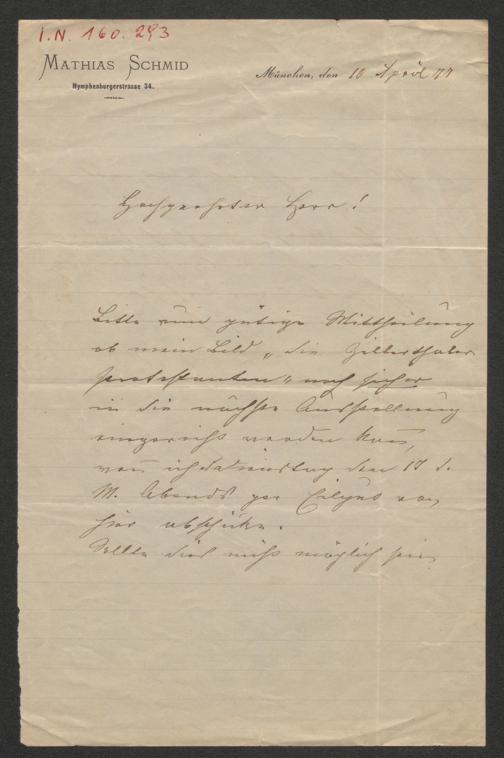 I.N. 160.293
MATHIAS SCHMID
Nymphenburgerstrasse 34.
München, den 10 April 77
Hochgeehrter Herr!
Bitte um gütige Mittheilung
ob mein Bild „die Zillerthaler
Protestanten" noch sicher
in die nächste Ausstellung
eingereiht werden kann,
wenn ich Dienstag den 17 d.
M. Abends per Eilgut von
hier abschicke.
Sollte dies nicht möglich sein,